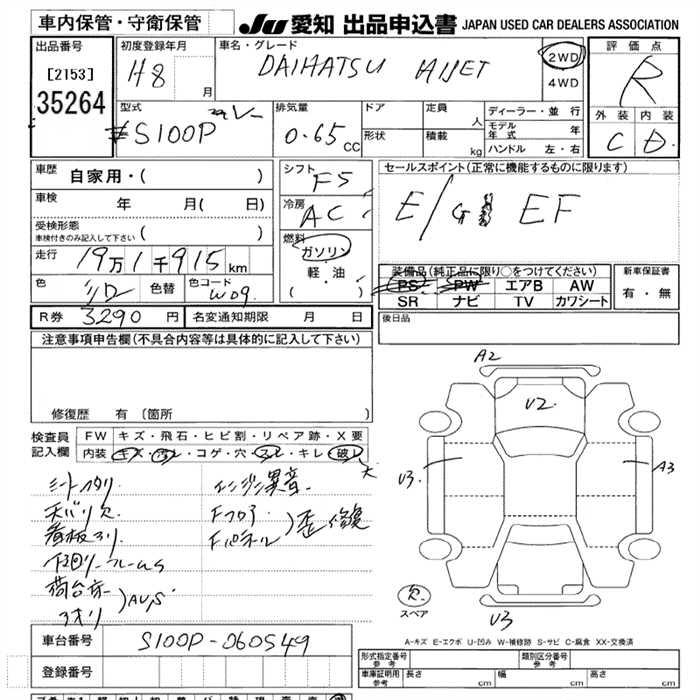 車内保管・守衛保管
JU 愛知 出品申込書 JAPAN USED CAR DEALERS ASSOCIATION
出品番号
[2153]
35264
初度登録年月
H8 月
車名・グレード
DAIHATSU HIJET
2WD
4WD
評価点
R
外装 内装
C D
型式
S100P
排気量
0.65 CC
ドア
形状
定員 人
積載 kg
ディーラー・並行
モデル年式 年
ハンドル 左・右
車歴
自家用・( )
車検 年 月( 日)
受検形態
車検付きのみ記入して下さい ( )
走行 19万1千915 km
色 シロ 色替 色コード W09.
シフト
F5
冷房
AC
燃料
ガソリン
軽・油
( )
セールスポイント(正常に機能するものに限ります)
E/G EF
装備品(純正品に限り○をつけてください)
PS PW エアB AW
SR ナビ TV カワシート
新車保証書
有・無
R券 3290 円 名変通知期限 月 日
後日品
注意事項申告欄(不具合内容等は具体的に記入して下さい)
修復歴 有(箇所 )
検査員
記入欄
FW キズ・飛石・ヒビ割・リペア跡・X要
内装 キズ・汚レ・コゲ・穴・スレ・キレ・破レ 大
シートヘタリ
天バリ欠
看板アリ
下回リ フレームS
荷台床
アオリ
)AU,S
エンジン異音
Fフロア
Fパネル
)歪修復
A2
U2.
U3.
A3
U3
欠.
スペア
A-キズ E-エクボ U-凹み W-補修跡 S-サビ C-腐食 XX-交換済
車台番号 S100P-060549
登録番号
形式指定番号
参考
類別区分番号
参考
車庫証明用
参考
長さ cm 幅 cm 高さ cm